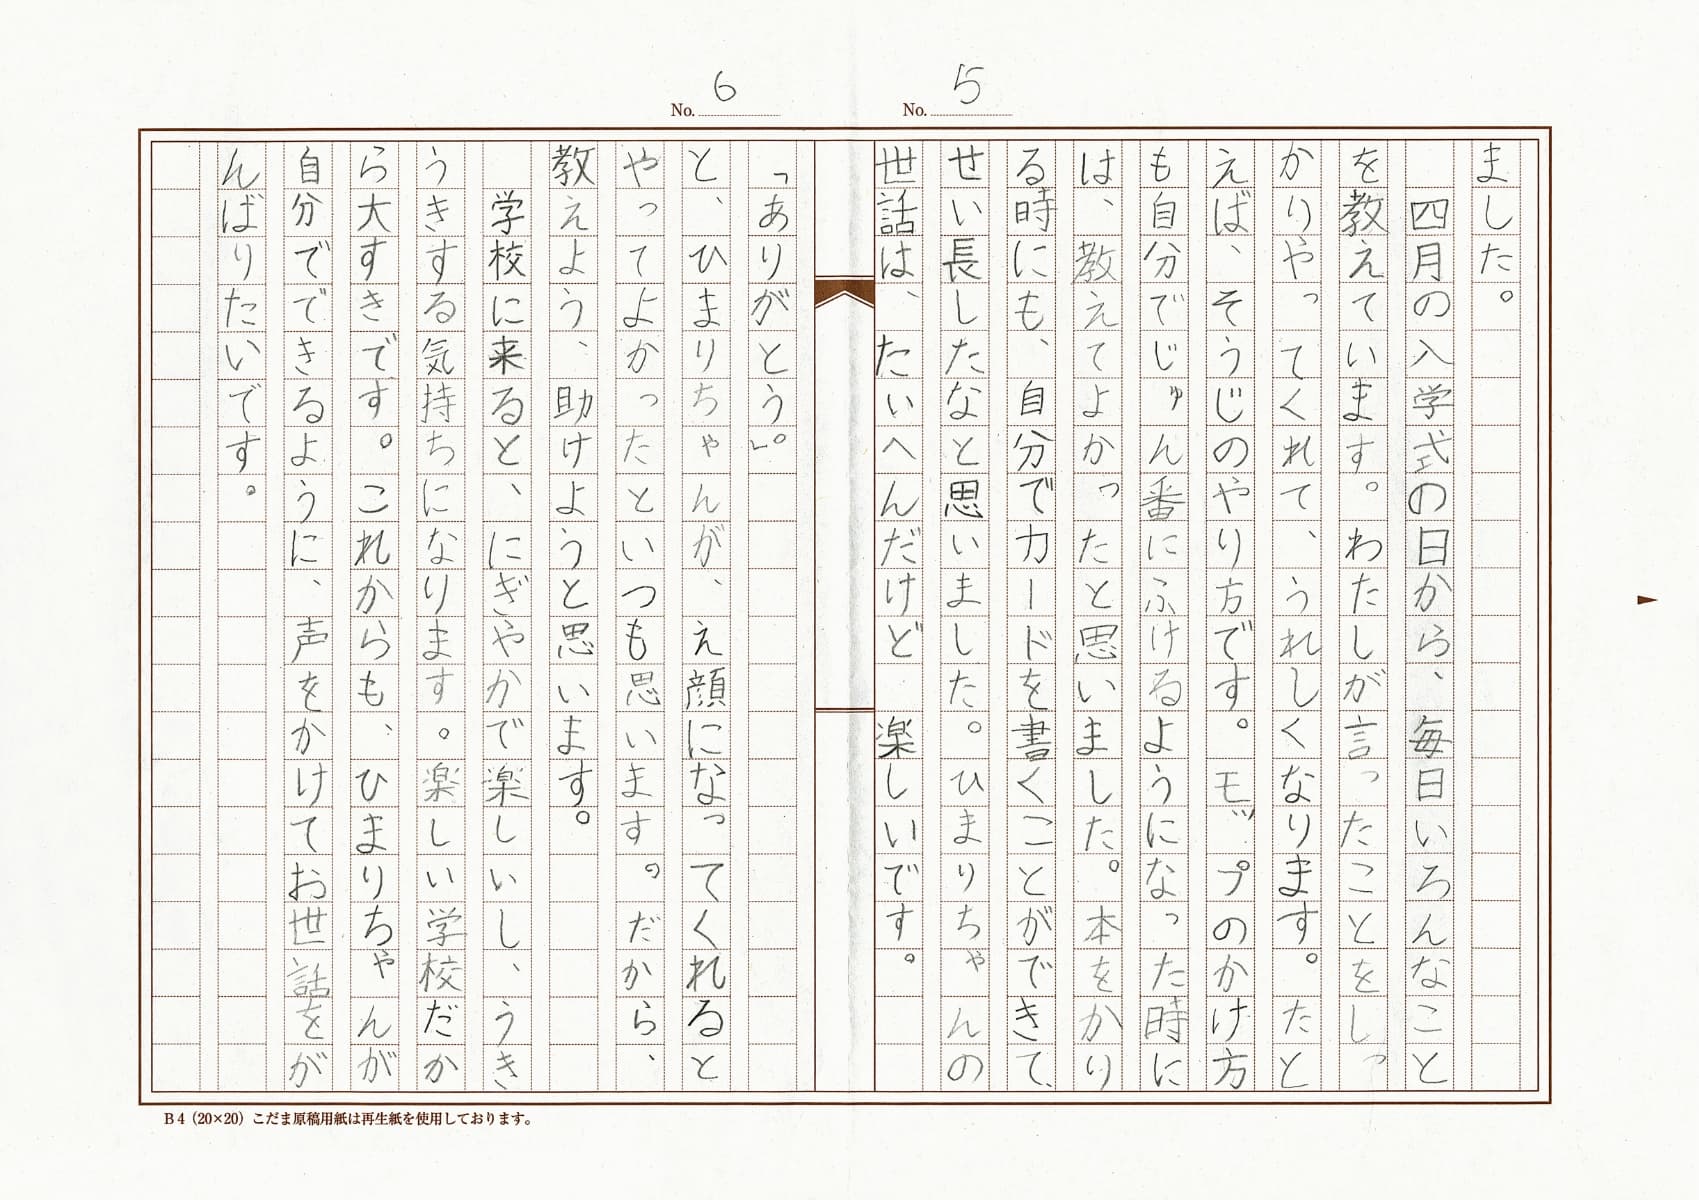 No. 5
ました。
　四月の入学式の日から、毎日いろんなこと
を教えています。わたしが言ったことをしっ
かりやってくれて、うれしくなります。たと
えば、そうじのやり方です。モップのかけ方
も自分でじゅん番にふけるようになった時に
は、教えてよかったと思いました。本をかり
る時にも、自分でカードを書くことができて、
せい長したなと思いました。ひまりちゃんの
世話は、たいへんだけど　楽しいです。
No. 6
「ありがとう」。
と、ひまりちゃんが、え顔になってくれると
やってよかったといつも思います。だから、
教えよう、助けようと思います。
　学校に来ると、にぎやかで楽しいし、うき
うきする気持ちになります。楽しい学校だか
ら大すきです。これからも、ひまりちゃんが
自分でできるように、声をかけてお世話をが
んばりたいです。
B4（20×20）こだま原稿用紙は再生紙を使用しております。